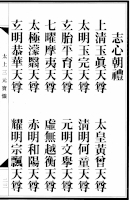 志心朝禮
上清玉眞天尊 太皇黃曾天尊
太明玉完天尊 清明何童天尊
玄胎平育天尊 元明文舉天尊
七曜摩夷天尊 虛無越衡天尊
太極濛翳天尊 赤明和陽天尊
玄明恭華天尊 耀明宗飄天尊
太上三元寶懺